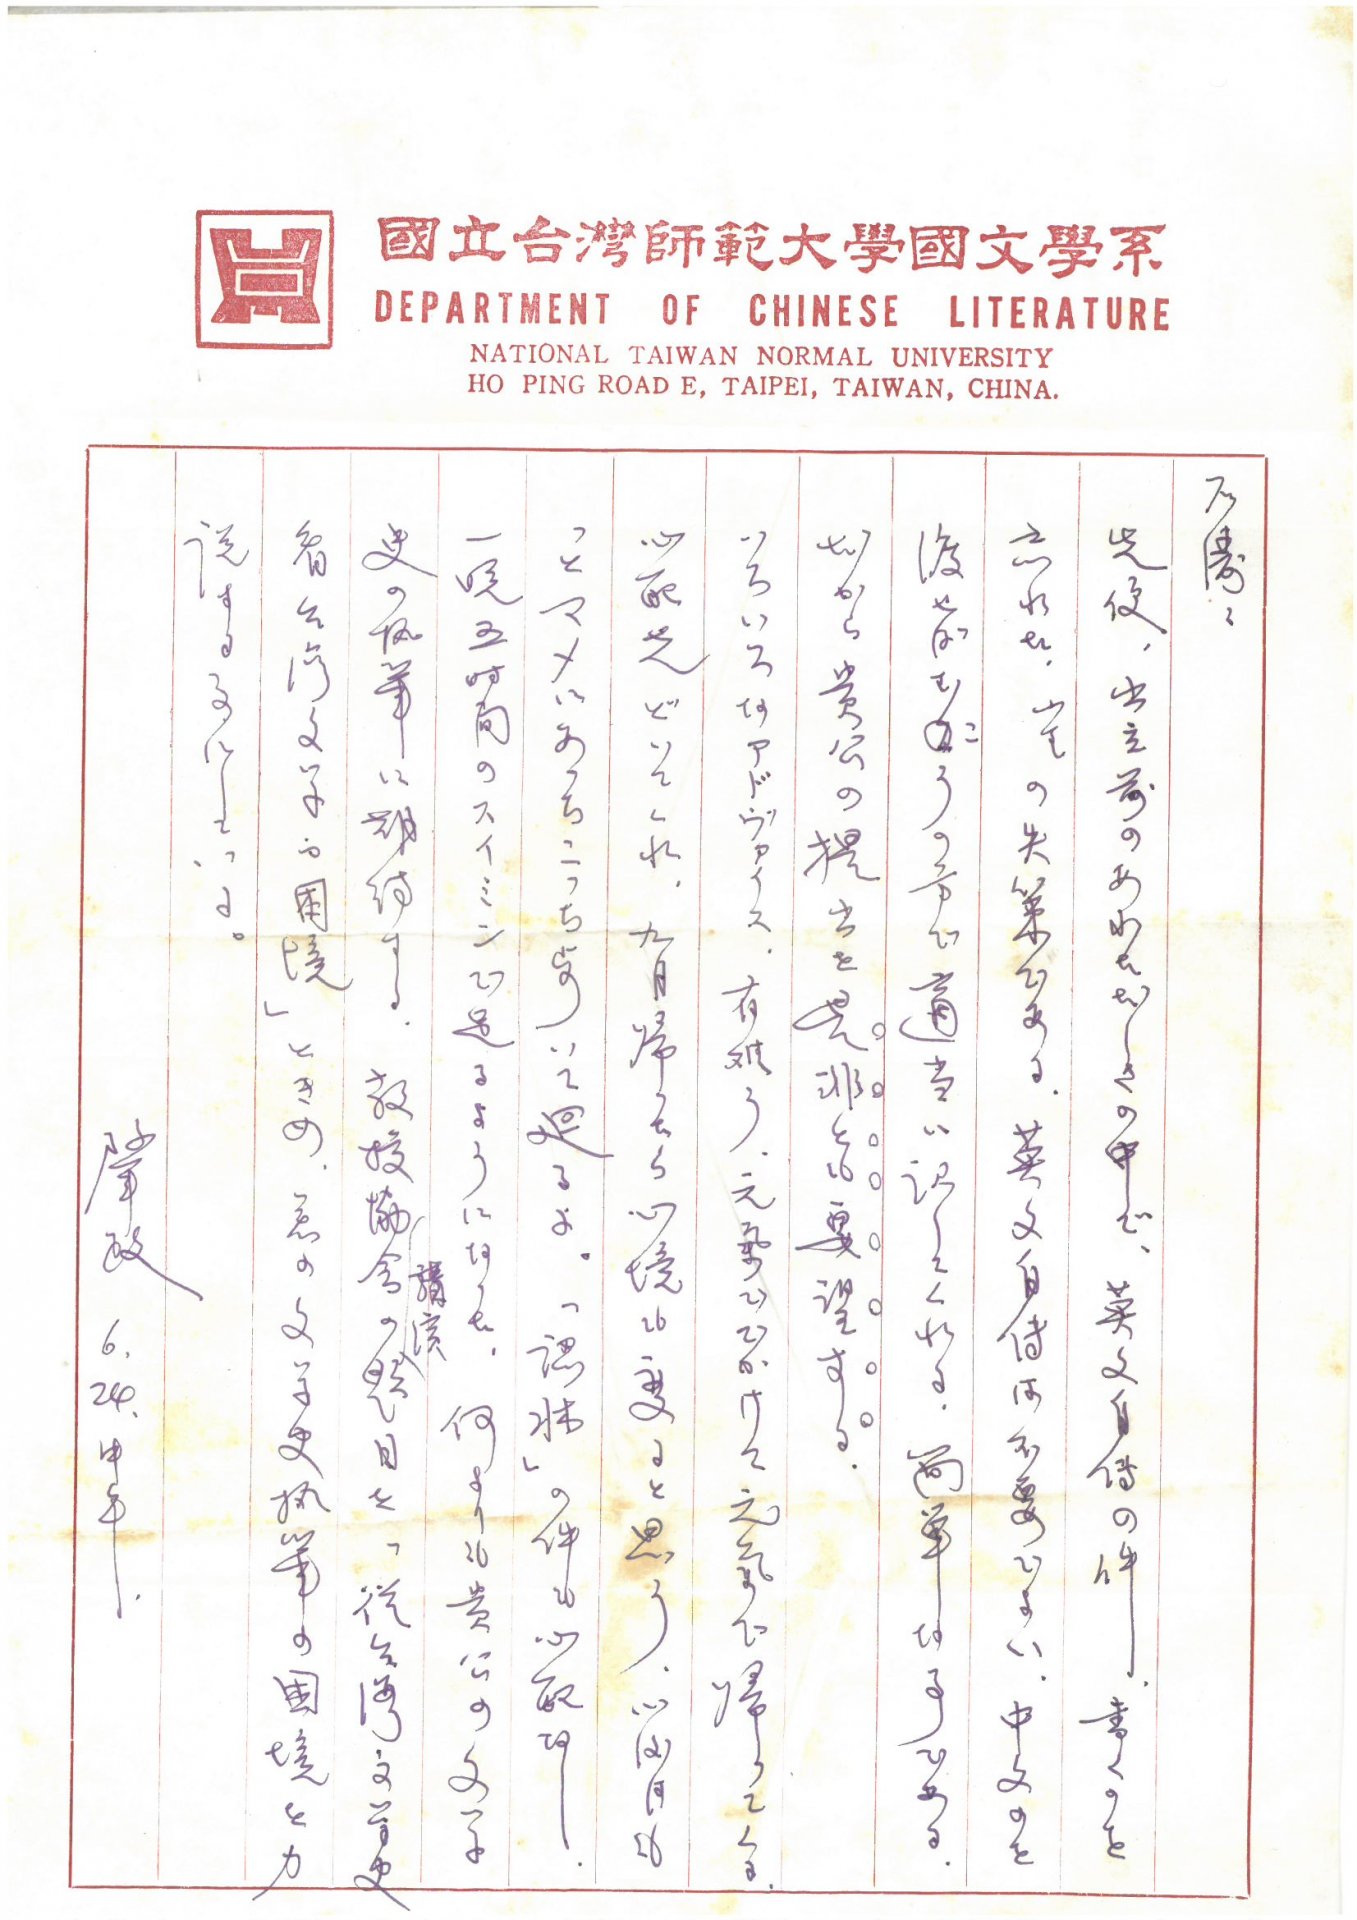 國立台灣師範大學國文學系
DEPARTMENT OF CHINESE LITERATURE
NATIONAL TAIWAN NORMAL UNIVERSITY
HO PING ROAD E, TAIPEI, TAIWAN, CHINA.
先後、出立前のあわただしさの中で、英文自傳の件、書くのを
忘れた、の失策である。英文自傳は不要でよい、中文のを
渡せばむこうの方で適当に訳してくれる。簡単な事である。
だから貴公の提出を是非とも要望する。
いろいろなアドヴァイス、有難う、元氣ででかけて元気で帰ってくる。
心配せんどいてくれ、九月帰ったら心境も変ると思う、
っとマメにあっちこっち歩いて廻るよ。「認姊」の件も心配なし。
一晩五時間のスイミンで足るようになった。何よりも貴公の文学
史の執筆に期待する。教授協會の講演題目を「從台灣文学史
看台湾文学の困境」ときめ、君の文学史執筆の困境を力
説する文にしている。
肇政 6.24.中午.